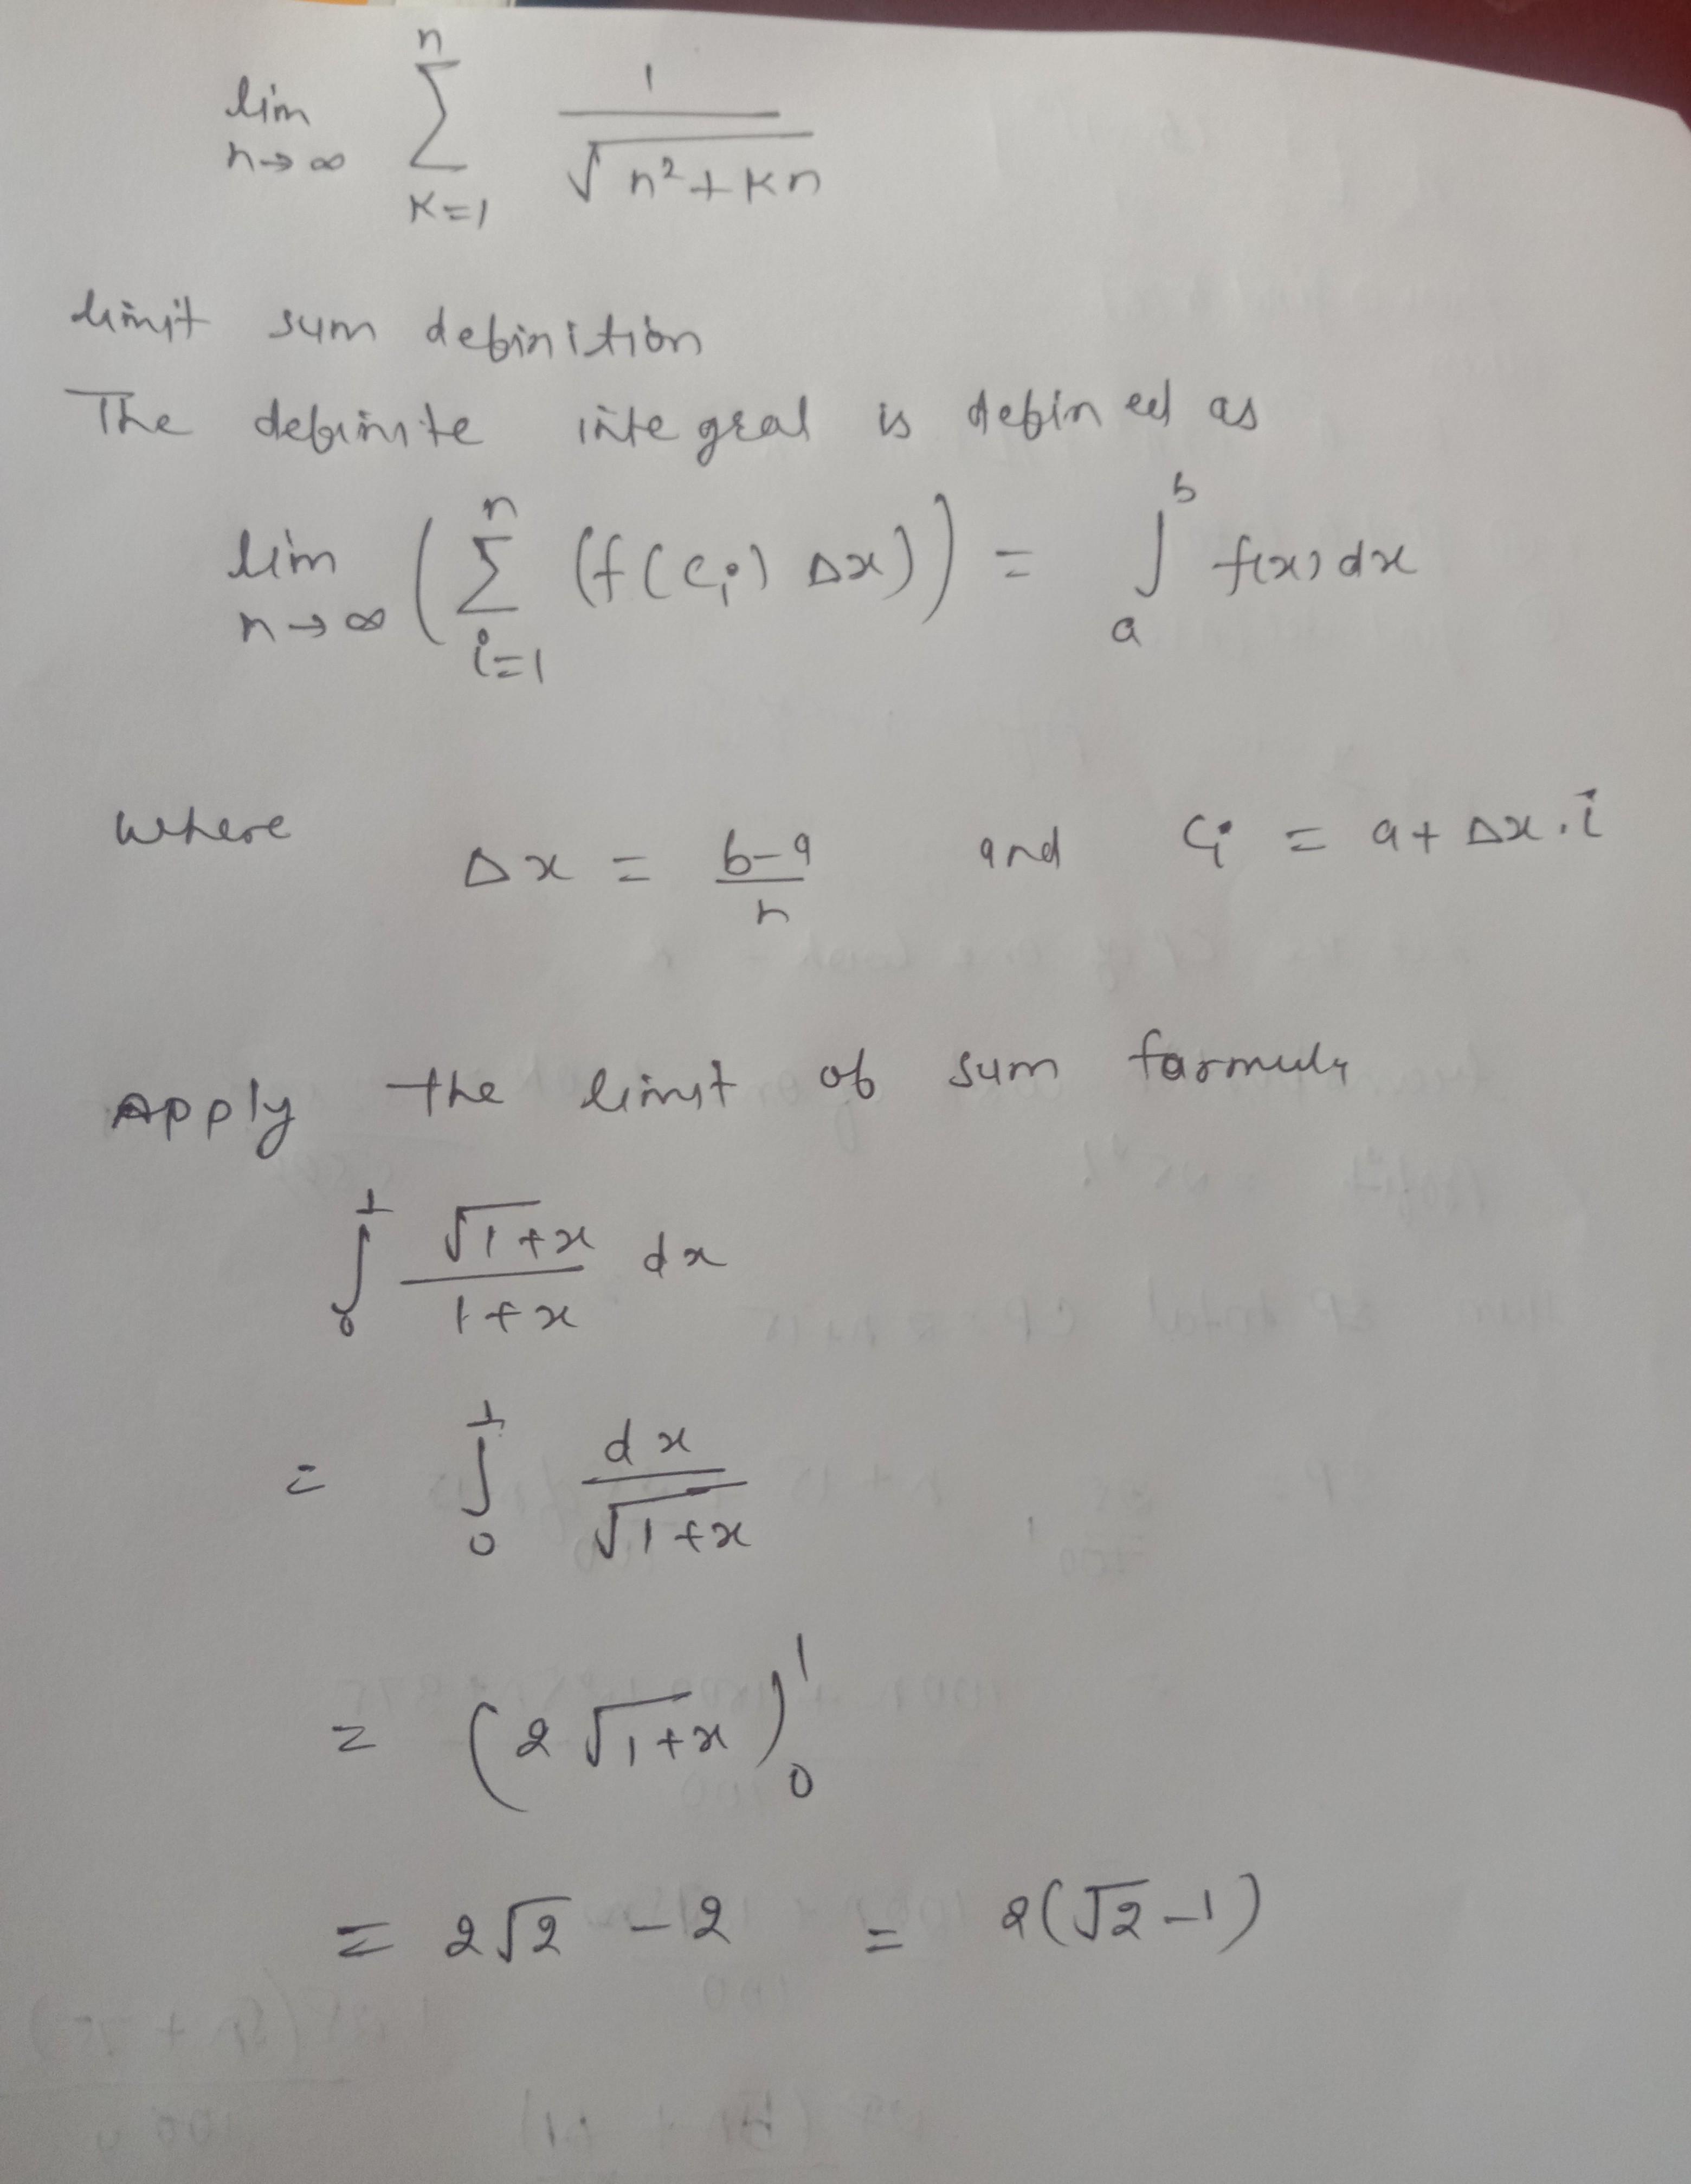 lim n→∞ n ∑ K=1 1 / √n²+kn
limit sum definition
The definite integral is defined as
lim n→∞ ( n ∑ i=1 (f(ci) Δx)) = b ∫ a f(x) dx
where Δx = b-a / n and ci = a+ Δx.i
Apply the limit of sum formula
1 ∫ 0 √1+x / 1+x dx
= 1 ∫ 0 dx / √1+x
= (2 √1+x) 1 0
= 2√2 - 2 = 2(√2 -1)